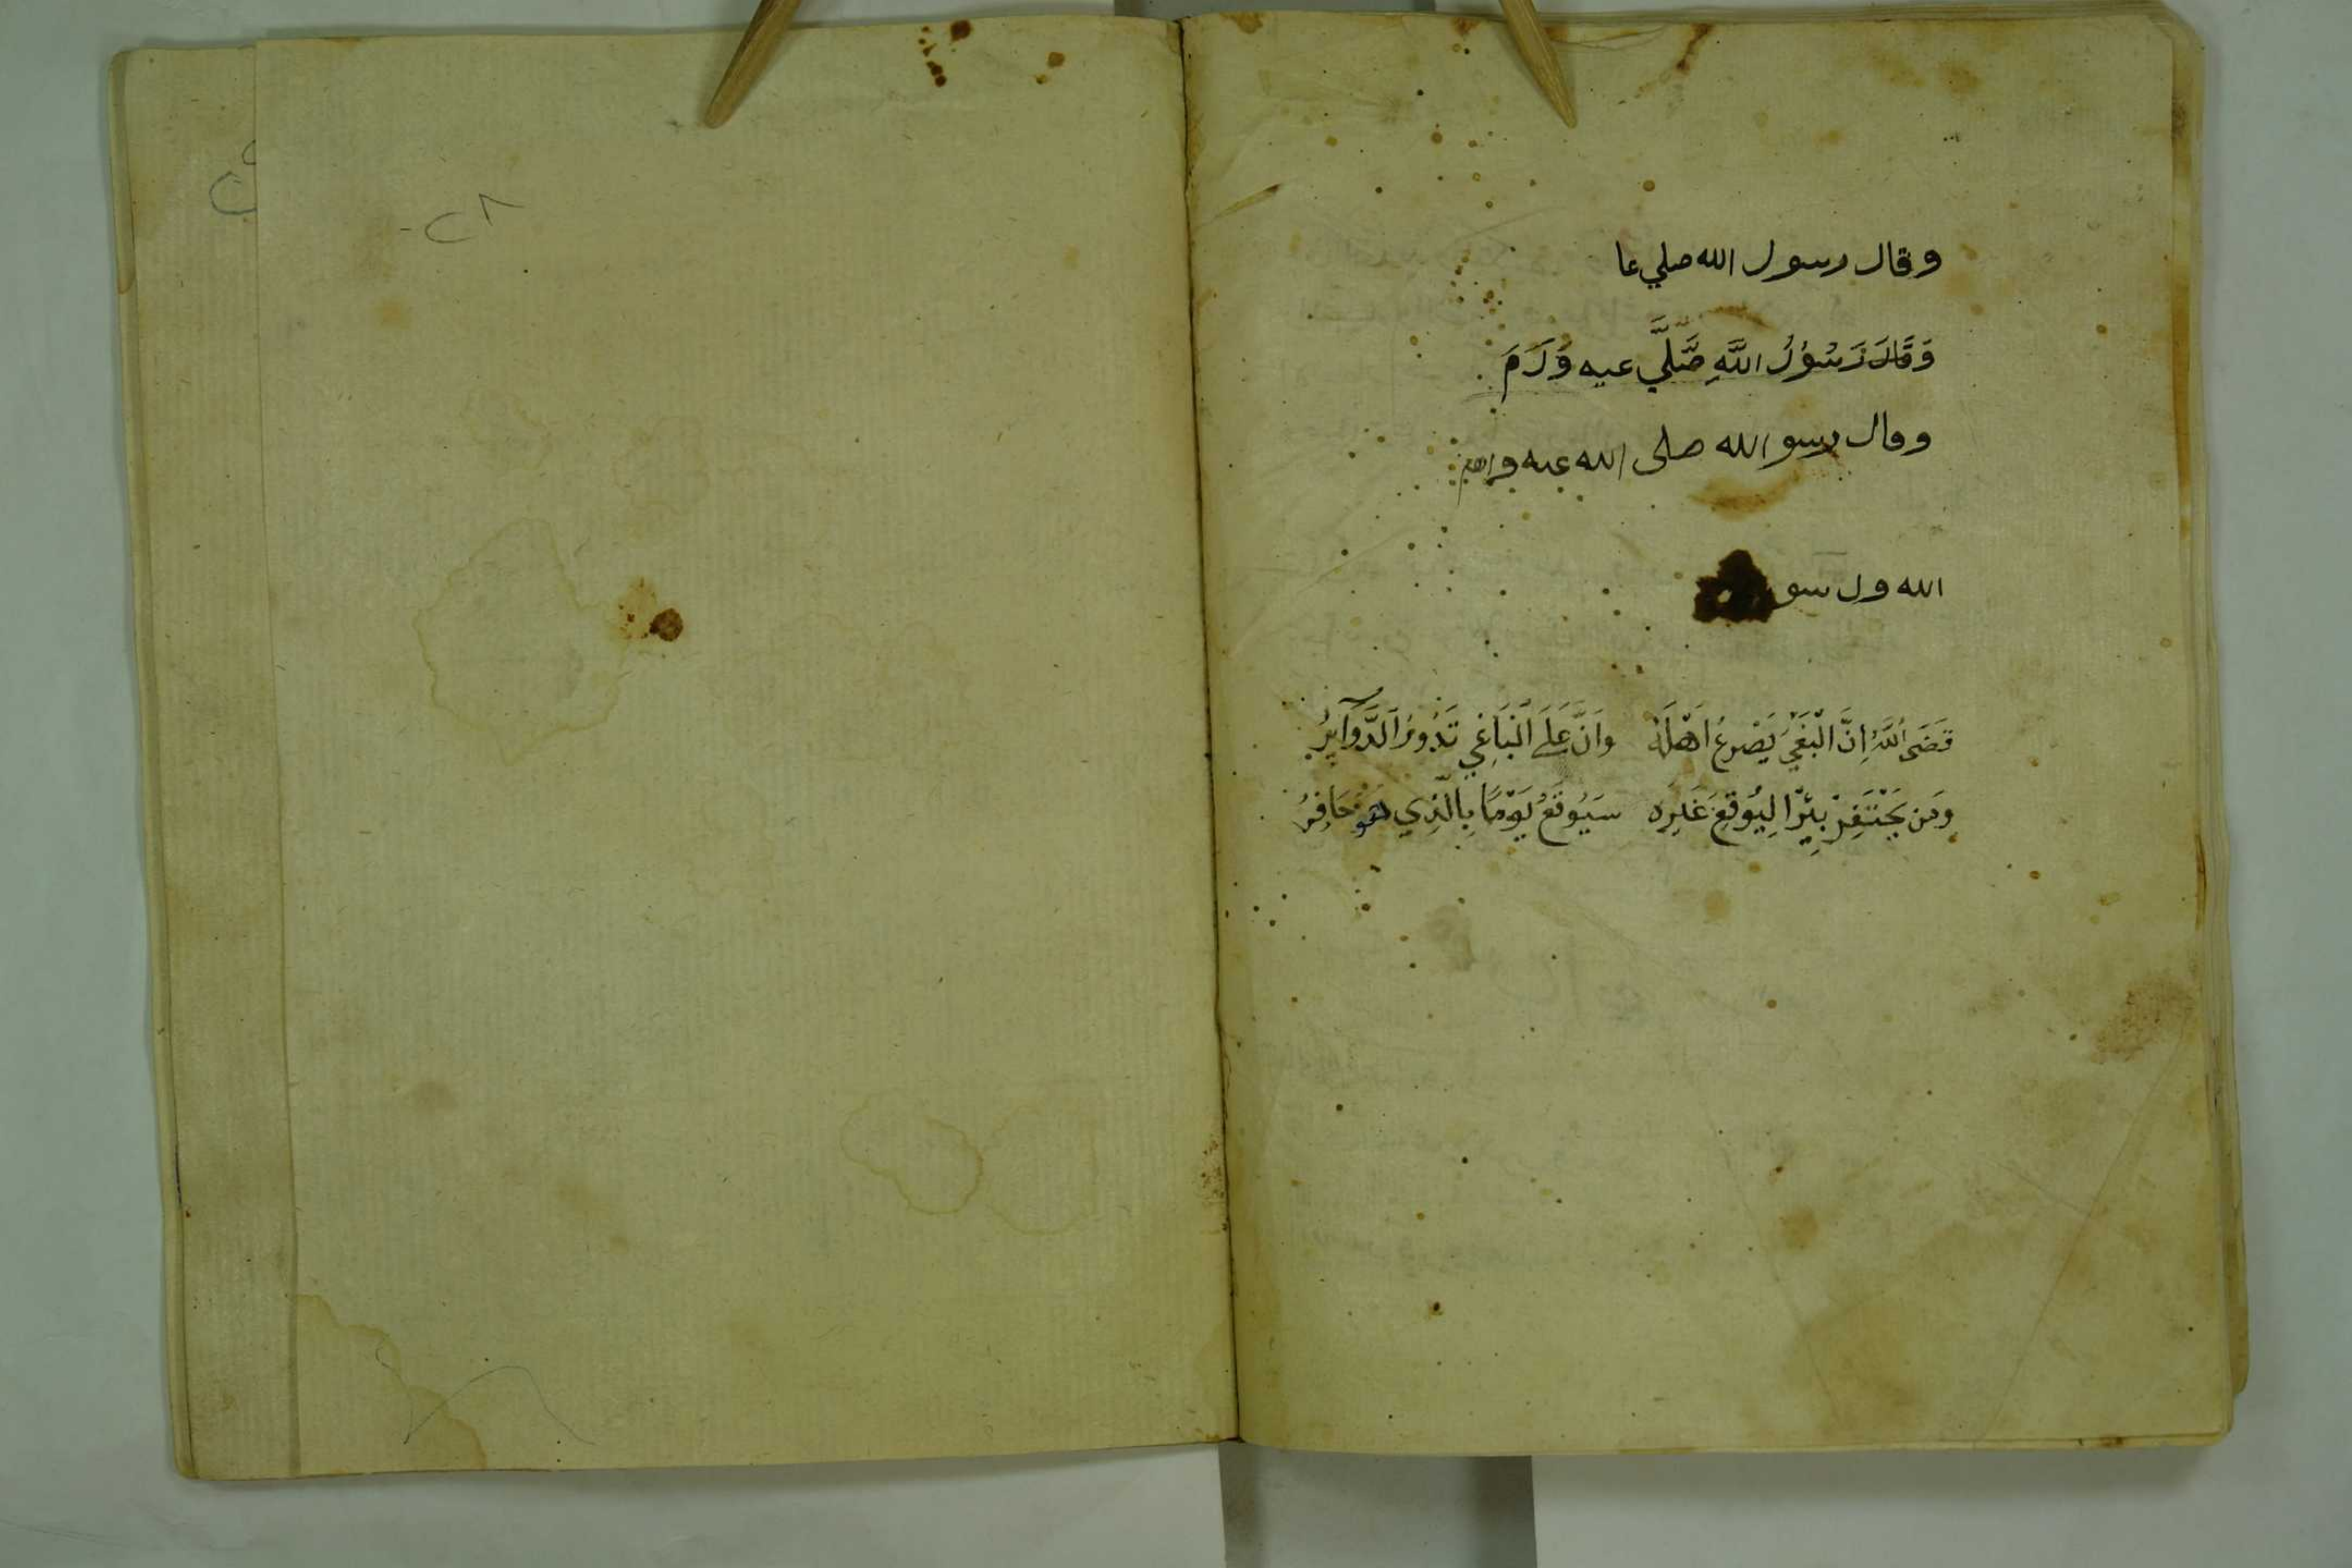 وقال رسول الله صلي عا
وَقَالَ رَسُوْلُ اللَّهِ صَّلَّي عيه وَلَدَمَ
وقال رسو الله صلى الله عيه و
الله ول سو
قَضَى اللَّهُ اِنَّ الْبَغْيَ يَصْرعُ اَهْلَهُ وَاَنَّ عَلَى الْبَاغِي تَدُورُ الَدَّوَآيِرُ
وَمَن يَحْتَفِرْ بِئرًا لِيُوقِعَ غَيرِه سَيُوقَعُ يَوْمًا بِالَّذِي هُوَ حَافِرُ
٢٨